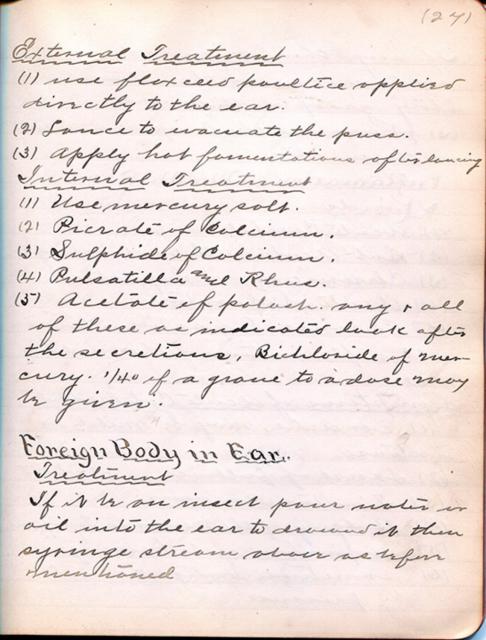 (27)
External Treatment
(1) use flaxceed poultice applied
directly to the ear.
(2) Lance to evacuate the puss.
(3) Apply hot fomentations after lancing
Internal Treatment
(1) Use mercury salt.
(2) Picrate of Calcium.
(3) Sulphide of Calcium.
(4) Pulsatilla and Rhus.
(5) Acetate of potash. any & all
of these as indicated look after
the secretions. Bichloride of mer-
cury. 1/40 of a grane to a dose may
be given.
Foreign Body in Ear.
Treatment
If it be an insect pour water or
oil into the ear to drowned it then
syringe stream above as before
mentioned